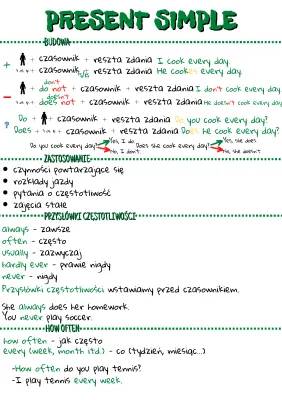 PRESENT SIMPLE
BUDOWA
+ czasownik + reszta zdania I cook every day.
czasownik + reszta zdania He cooks every day.
don't
do not + czasownik + reszta zdania I don't cook every day.
doesn't
does not + czasownik + reszta zdania He doesn't cook every day.
? Do + + czasownik + reszta zdania Do you cook every day?
Does + + czasownik + reszta zdania Does He cook every day?
Do you cook every day? Yes, I do. No, I don't. Does she cook every day? Yes, she does. No, she doesn't.
ZASTOSOWANIE
• czynności powtarzające się
• rozkłady jazdy
• pytania o częstotliwość
• zajęcia stałe
PRZYSŁÓWKI CZĘSTOTLIWOŚCI
always - zawsze
often - często
usually - zazwyczaj
hardly ever - prawie nigdy
never - nigdy
Przysłówki częstotliwości wstawiamy przed czasownikiem.
She always does her homework.
You never play soccer.
HOW OFTEN
how often - jak często
every (week, month itd.) - co (tydzień, miesiąc...)
-How often do you play tennis?
-I play tennis every week.